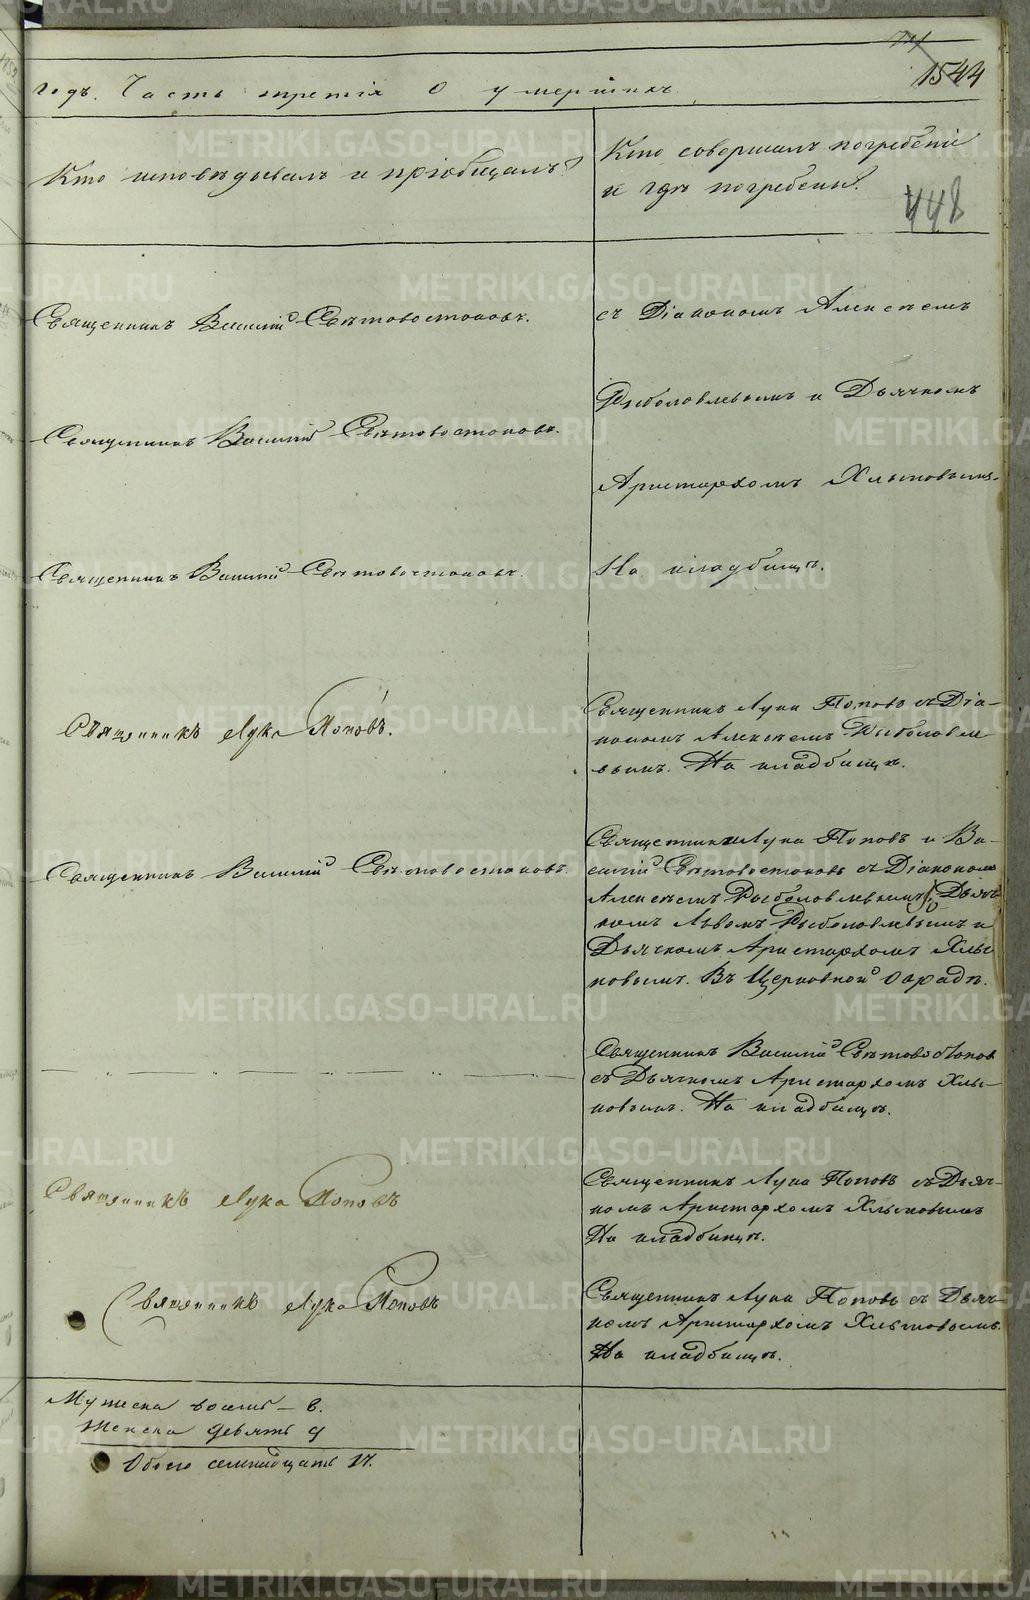 1544
годъ. Часть третія О умершихъ.
Кто исповѣдывалъ и пріобщалъ?
Кто совершалъ погребеніе
и гдѣ погребены?
448
Священникъ Василій Свѣтовостоковъ.
съ Діакономъ Алексѣемъ
Рыболовлевымъ и Дьячкомъ
Священникъ Василій Свѣтовостоковъ.
Аристархомъ Хлыновымъ.
Священникъ Василій Свѣтовостоковъ.
На кладбищѣ.
Священникъ Лука Поповъ.
Священникъ Лука Поповъ съ Діа-
кономъ Алексѣемъ Рыболовле-
вымъ. На кладбищѣ.
Священникъ Василій Свѣтовостоковъ.
Священники Лука Поповъ и Ва-
силій Свѣтовостоковъ съ Діакономъ
Алексѣемъ Рыболовлевымъ, Дьяч-
комъ Львомъ Рыболовлевымъ и
Дьячкомъ Аристархомъ Хлы-
новымъ. Въ Церковной оградѣ.
Священникъ Василій Свѣтовостоковъ
съ Дьячкомъ Аристархомъ Хлы-
новымъ. На кладбищѣ.
Священникъ Лука Поповъ
Священникъ Лука Поповъ съ Дьяч-
комъ Аристархомъ Хлыновымъ
На кладбищѣ.
Священникъ Лука Поповъ
Священникъ Лука Поповъ съ Дьяч-
комъ Аристархомъ Хлыновымъ.
На кладбищѣ.
Мужеска восемь – 8.
Женска девять 9
Обоего семнадцать 17.
METRIKI.GASO-URAL.RU